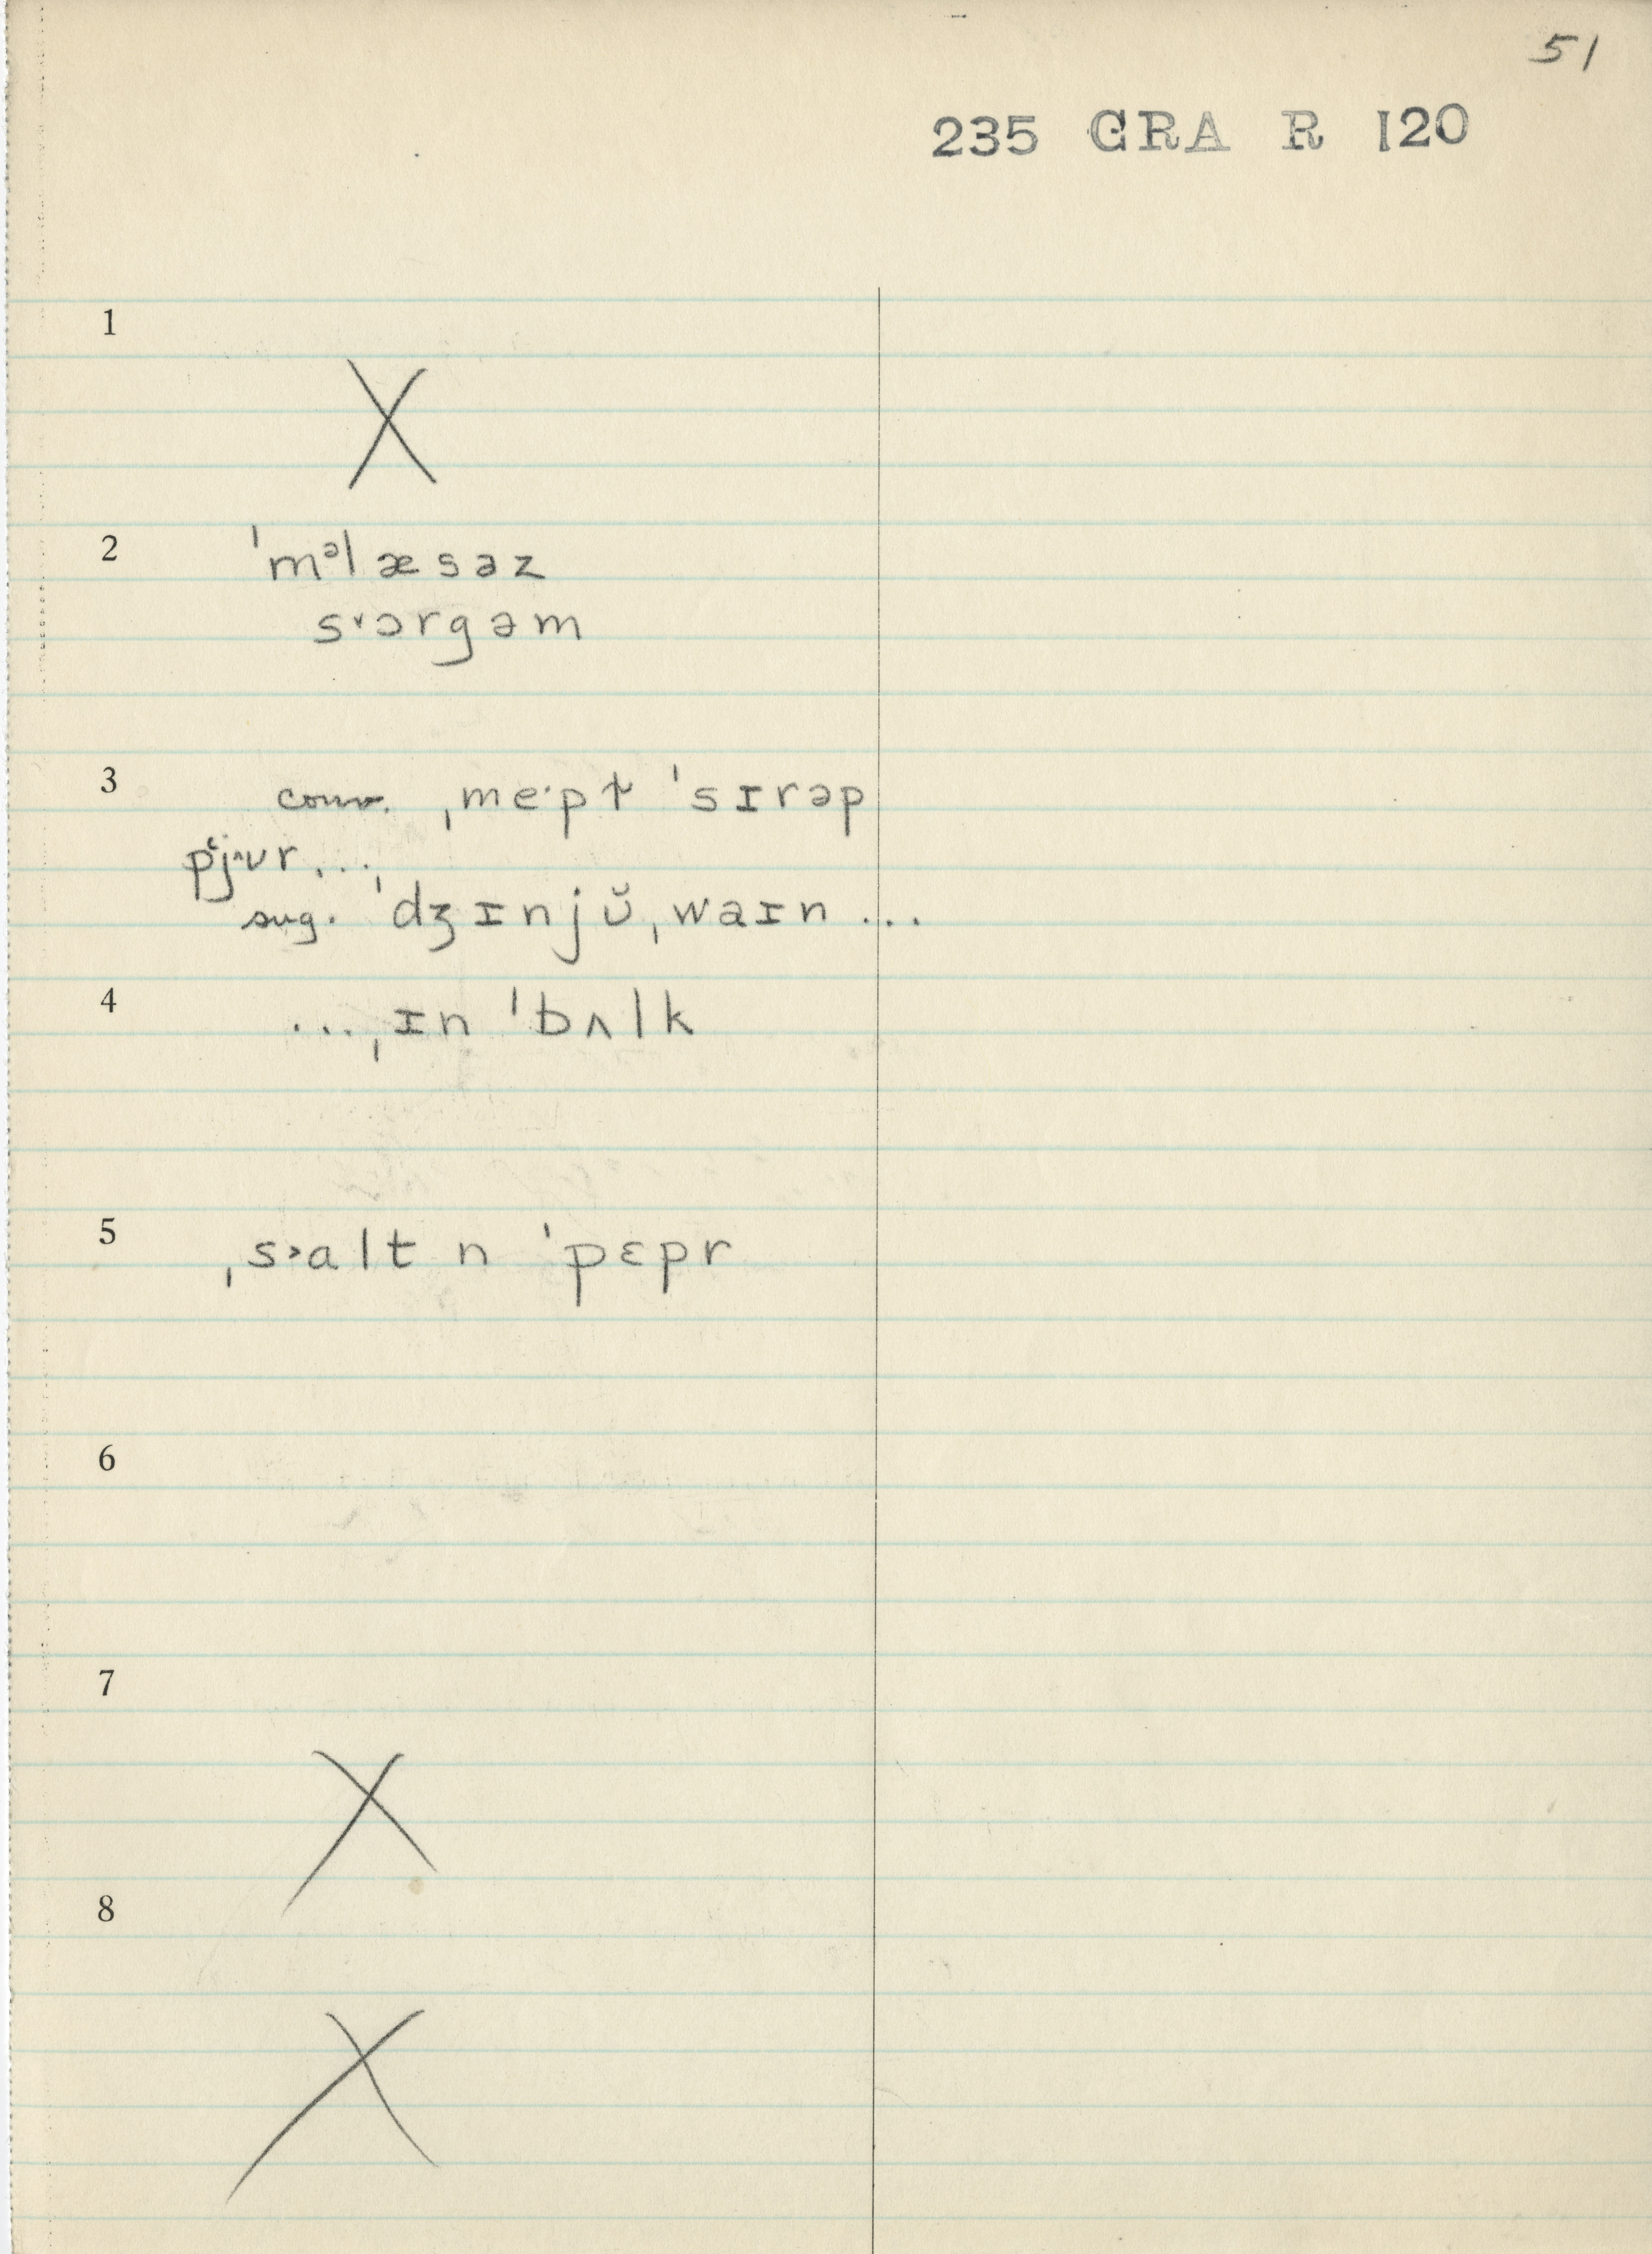 51
235 GRA R 120
1
X
2 ˈmᵊlæsəz
s˅ɔrgəm
3 conv. ˌme·pɫ ˈsɪrəp
pʿj^ʊr...
sug. ˈdʒɪnjŭˌwaɪn ...
4 ...ˌɪn ˈbʌlk
5 ˌs˃alt n ˈpɛpr
6
7
X
8
X